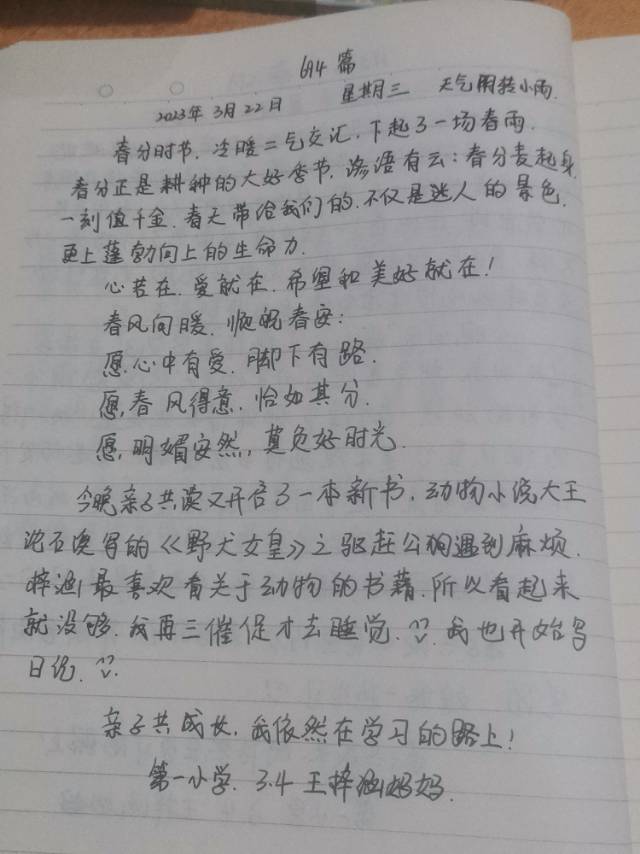 694篇
2023年3月22日 星期三 天气阴转小雨.
春分时节,冷暖二气交汇,下起了一场春雨.
春分正是耕种的大好季节,谚语有云:春分麦起身,
一刻值千金.春天带给我们的,不仅是迷人的景色,
更上蓬勃向上的生命力.
心若在,爱就在,希望和美好就在!
春风向暖,顺祝春安:
愿,心中有爱,脚下有路.
愿,春风得意,恰如其分.
愿,明媚安然,莫负好时光.
今晚亲子共读又开启了一本新书,动物小说大王
沈石溪写的《野犬女皇》之驱赶公狗遇到麻烦.
梓涵最喜欢看关于动物的书籍,所以看起来
就没够.我再三催促才去睡觉. 我也开始写
日记.
亲子共成长,我依然在学习的路上!
第一小学. 3.4 王梓涵妈妈.